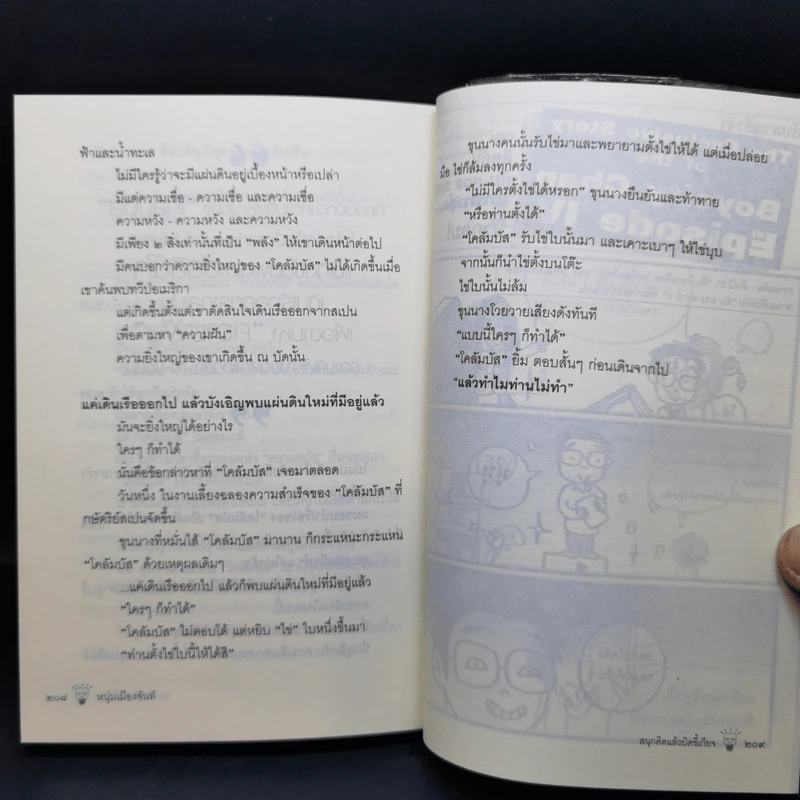 ฟ้าและน้ำทะเล
ไม่มีใครรู้ว่าจะมีแผ่นดินอยู่เบื้องหน้าหรือเปล่า
มีแต่ความเชื่อ - ความเชื่อ และความเชื่อ
ความหวัง - ความหวัง และความหวัง
มีเพียง ๒ สิ่งเท่านั้นที่เป็น “พลัง” ให้เขาเดินหน้าต่อไป
มีคนบอกว่าความยิ่งใหญ่ของ “โคลัมบัส” ไม่ได้เกิดขึ้นเมื่อ
เขาค้นพบทวีปอเมริกา
แต่เกิดขึ้นตั้งแต่เขาตัดสินใจเดินเรือออกจากสเปน
เพื่อตามหา “ความฝัน”
ความยิ่งใหญ่ของเขาเกิดขึ้น ณ บัดนั้น
แค่เดินเรือออกไป แล้วบังเอิญพบแผ่นดินใหม่ที่มีอยู่แล้ว
มันจะยิ่งใหญ่ได้อย่างไร
ใครๆ ก็ทำได้
นั่นคือข้อกล่าวหาที่ “โคลัมบัส” เจอมาตลอด
วันหนึ่ง ในงานเลี้ยงฉลองความสำเร็จของ “โคลัมบัส” ที่
กษัตริย์สเปนจัดขึ้น
ขุนนางที่หมั่นไส้ “โคลัมบัส” มานาน ก็กระแหนะกระแหน
“โคลัมบัส” ด้วยเหตุผลเดิมๆ
...แค่เดินเรือออกไป แล้วก็พบแผ่นดินใหม่ที่มีอยู่แล้ว
“ใครๆ ก็ทำได้”
“โคลัมบัส” ไม่ตอบโต้ แต่หยิบ “ไข่” ใบหนึ่งขึ้นมา
“ท่านตั้งไข่ใบนี้ให้ได้สิ”
๒๐๘ หนุ่มเมืองจันท์
ขุนนางคนนั้นรับไข่มาและพยายามตั้งไข่ให้ได้ แต่เมื่อปล่อย
มือ ไข่ก็ล้มลงทุกครั้ง
“ไม่มีใครตั้งไข่ได้หรอก” ขุนนางยืนยันและท้าทาย
“หรือท่านตั้งได้”
“โคลัมบัส” รับไข่ใบนั้นมา และเคาะเบาๆ ให้ไข่บุบ
จากนั้นก็นำไข่ตั้งบนโต๊ะ
ไข่ใบนั้นไม่ล้ม
ขุนนางโวยวายเสียงดังทันที
“แบบนี้ใครๆ ก็ทำได้”
“โคลัมบัส” ยิ้ม ตอบสั้นๆ ก่อนเดินจากไป
“แล้วทำไมท่านไม่ทำ”
สนุกคิดแล้วบิดขี้เกียจ ๒๐๙